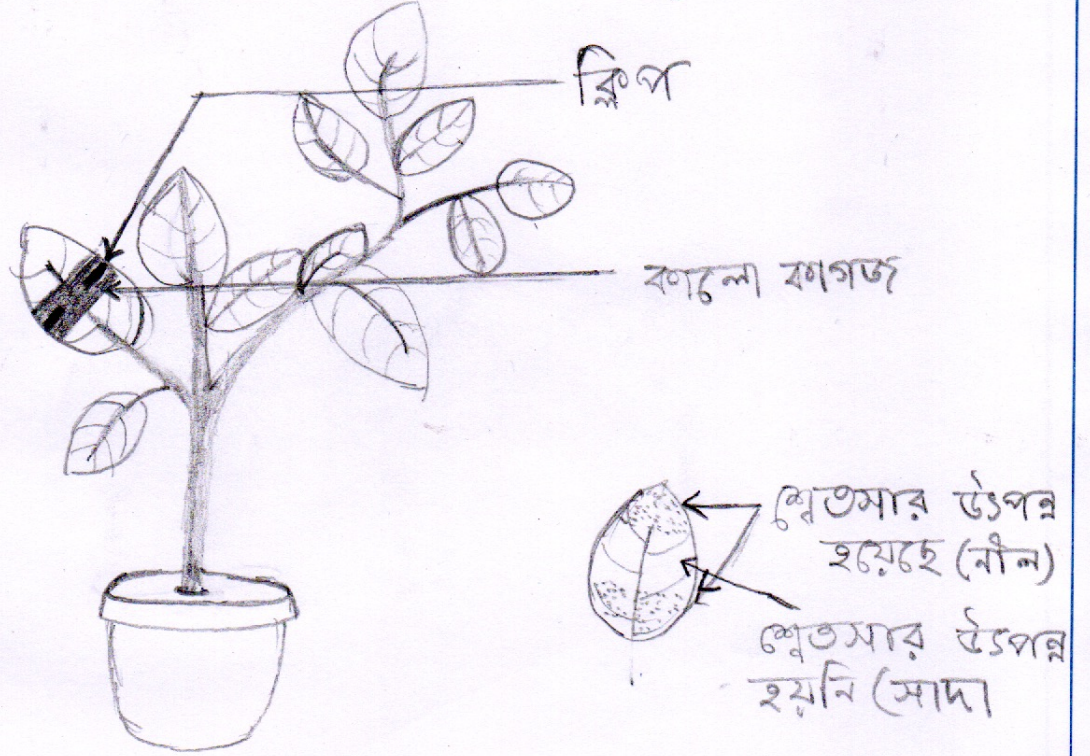 ক্লিপ
কালো কাগজ
শ্বেতসার উৎপন্ন
হয়েছে (নীল)
শ্বেতসার উৎপন্ন
হয়নি (সাদা